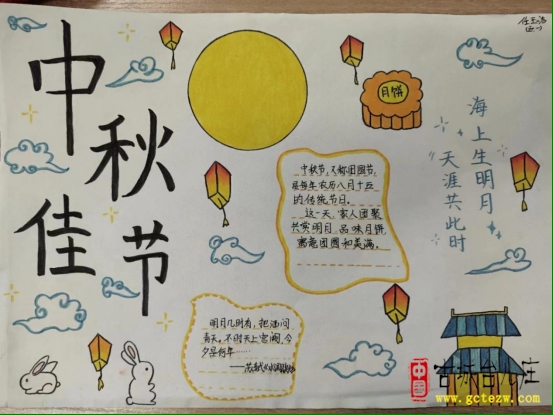 中秋佳节
月饼
海上生明月
天涯共此时
中秋节，又称团圆节，
是每年农历八月十五
的传统节日。
这一天，家人团聚
共赏明月，品味月饼
寓意团圆和美满。
明月几时有，把酒问
青天。不知天上宫阙，今
夕是何年……
www.gctezw.com